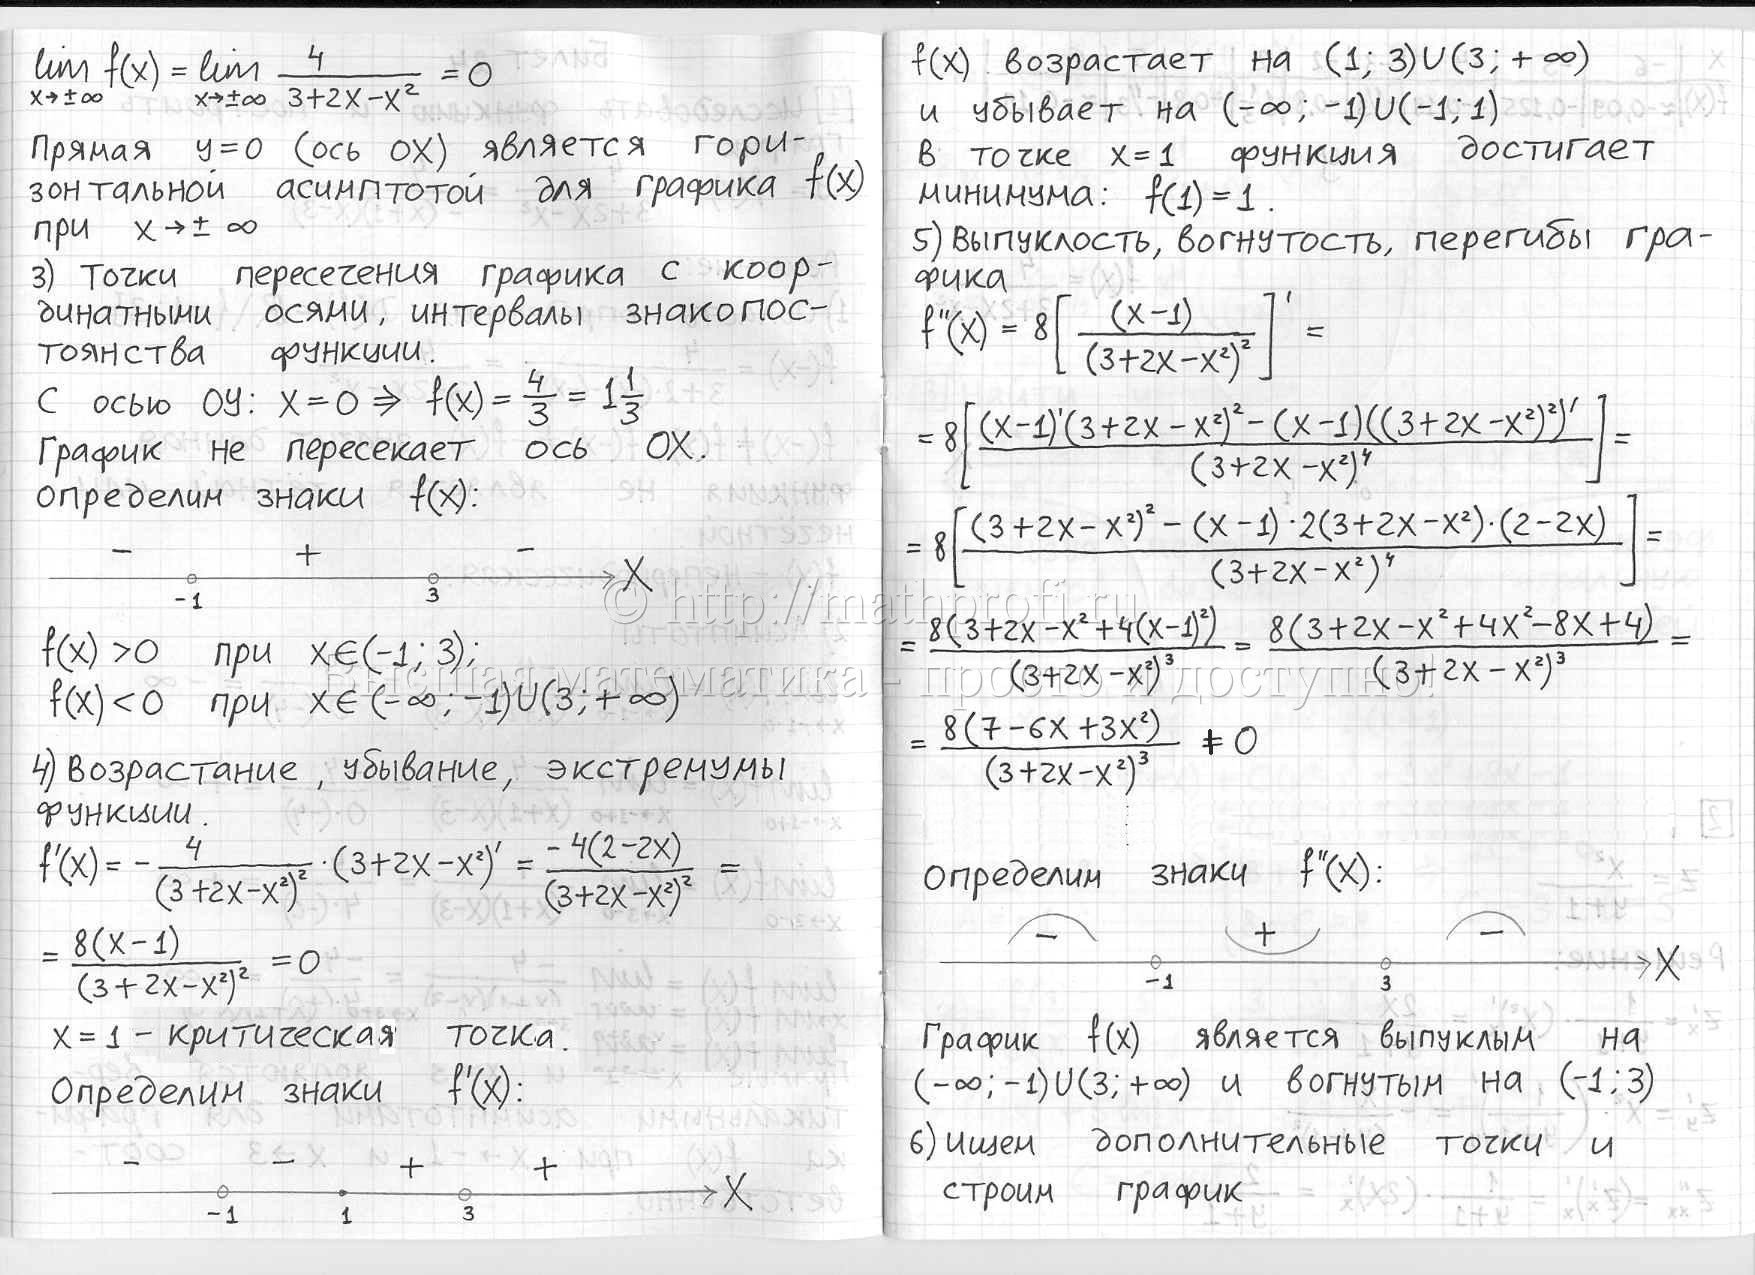 lim f(x) = lim 4/(3+2x−x²) = 0
x→±∞ x→±∞
Прямая y=0 (ось OX) является гори-
зонтальной асимптотой для графика f(x)
при x→±∞
3) Точки пересечения графика с коор-
динатными осями, интервалы знакопос-
тоянства функции.
С осью OY: x=0 ⇒ f(x) = 4/3 = 1 1/3
График не пересекает ось OX.
Определим знаки f(x):
− + −
-1 3 X
f(x) >0 при x∈(-1; 3);
f(x) <0 при x∈(-∞; -1)U(3; +∞)
4) Возрастание, убывание, экстремумы
функции.
f'(x) = − 4/(3+2x−x²)² · (3+2x−x²)' = −4(2−2x)/(3+2x−x²)² =
= 8(x−1)/(3+2x−x²)² = 0
x=1 – критическая точка.
Определим знаки f'(x):
− − + +
-1 1 3 X
f(x) возрастает на (1; 3)U(3; +∞)
и убывает на (-∞; -1)U(-1; 1)
В точке x=1 функция достигает
минимума: f(1) = 1.
5) Выпуклость, вогнутость, перегибы гра-
фика
f''(x) = 8[(x−1)/(3+2x−x²)²]' =
= 8[((x−1)'(3+2x−x²)² − (x−1)((3+2x−x²)²)')/(3+2x−x²)⁴] =
= 8[((3+2x−x²)² − (x−1)·2(3+2x−x²)·(2−2x))/(3+2x−x²)⁴] =
= 8(3+2x−x²+4(x−1)²)/(3+2x−x²)³ = 8(3+2x−x²+4x²−8x+4)/(3+2x−x²)³ =
= 8(7−6x+3x²)/(3+2x−x²)³ ≠ 0
Определим знаки f''(x):
− + −
-1 3 X
График f(x) является выпуклым на
(-∞; -1)U(3; +∞) и вогнутым на (-1; 3)
6) Ищем дополнительные точки и
строим график
© http://mathprofi.ru
Высшая математика - просто и доступно!